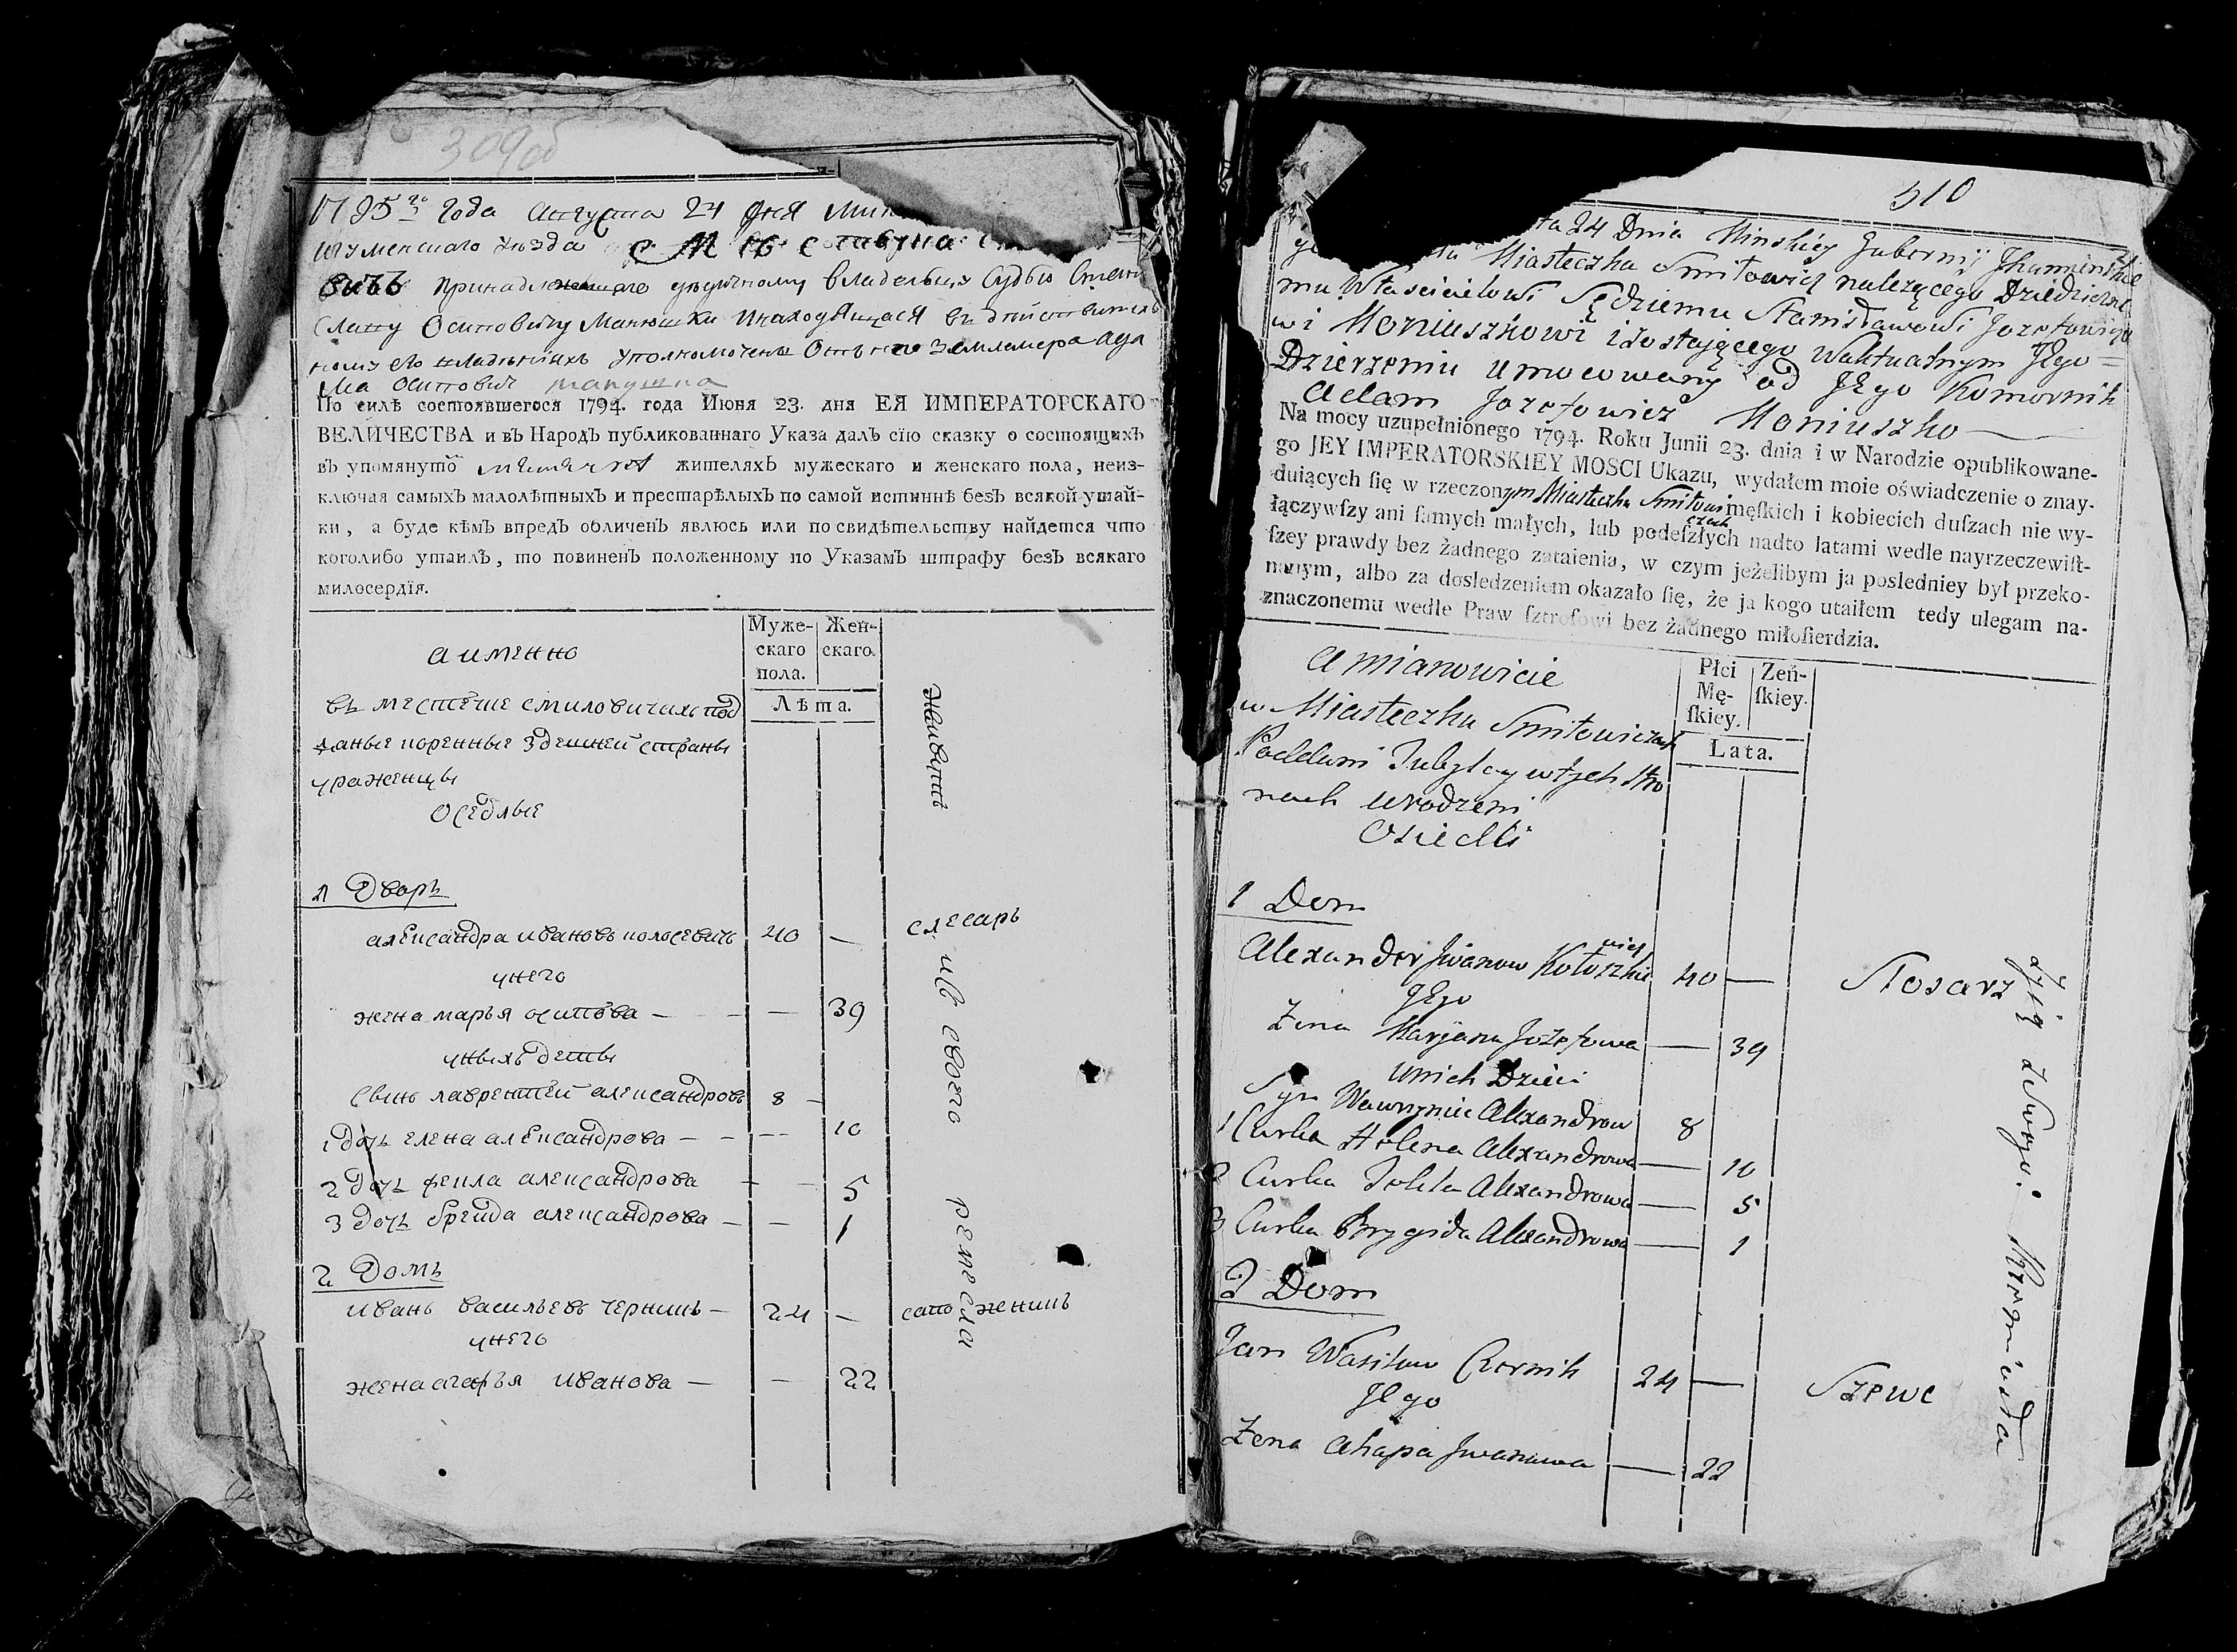 309об
1795го года августа 24 дня Мин
игуменскаго уезда
принадлежащаго владельцу судьи Стани
славу Осиповичу Манюшки находящаяся в действитель
ному его владении уполномочены от него землемера Ада
ма Осипович манушка
По силѣ состоявшегося 1794. года Июня 23. дня ЕЯ ИМПЕРАТОРСКАГО
ВЕЛИЧЕСТВА и въ Народъ публикованнаго Указа далъ сїю сказку о состоящихъ
въ упомянуто местечке жителяхъ мужескаго и женскаго пола, неиз-
ключая самыхъ малолѣтныхъ и престарѣлыхъ по самой истиннѣ безъ всякой утай-
ки, а буде кѣмъ впредь обличенъ явлюсь или по свидѣтельству найдется что
коголибо утаилъ, то повиненъ положенному по Указамъ штрафу безъ всякаго
милосердїя.
а именно
Муже-
скаго
пола.
Жен-
скаго.
Лѣта.
въ местечке смиловичахъ под
даные коренные здешней страны
уроженцы
оседлые
1 Дворъ
александра ивановъ колосевичъ 40 — слесарь
унего
жена марья осипова — — 39
унихъ дети
сынъ лаврентей александровъ 8 —
1 дочь елена александрова — — 10
2 дочь фекла александрова — — 5
3 дочь брегида александрова — — 1
2 Домъ
иванъ васильевъ черникъ — 24 — сапоженикъ
унего
жена агафья иванова — — 22
Живетъ изъ своего ремесла
310
ta 24 Dnia Minskiey Gubernij Jhumenskie
Miasteczka Smiłowicz należącego Dziedziczne
mu Właścicielowi Sędziemu Stanisławowi Jozefowiczu
wi Moniuszkowi i zostającego Waktualnym JEgo
Dzierzeniu umocowany od JEgo Komornik
Adam Jozefowicz Moniuszko —
Na mocy uzupełnionego 1794. Roku Junii 23. dnia i w Narodzie opublikowane-
go JEY IMPERATORSKIEY MOSCI Ukazu, wydałem moie oświadczenie o znay-
duiących ſię w rzeczonym Miasteczku Smiłowiczach męſkich i kobiecich duſzach nie wy-
łączywſzy ani ſamych małych, lub podeſzłych nadto latami wedle nayrzeczewiſt-
ſzey prawdy bez żadnego zataienia, w czym jeżelibym ja posledniey był przeko-
nanym, albo za dosledzeniem okazało ſię, że ja kogo utaiłem tedy ulegam na-
znaczonemu wedle Praw ſztrofowi bez żadnego miłoſierdzia.
a mianowicie
Płci
Mę-
ſkiey.
Zeń-
ſkiey.
Lata.
w Miasteczku Smiłowiczach
Poddani Tubylcy wtych stro
nach urodzeni
Osiedli
1 Dom
Alexander Jwanow Kołoszkiewicz 40 — Slosarz
JEgo
Zona Maryana Jozefowa — 39
Unich Dzieci
Syn Wawrzyniec Alexandrow 8
1 Curka Helena Alexandrowa — 10
2 Curka Tekla Alexandrowa — 5
3 Curka Brygida Alexandrowa — 1
2 Dom
Jan Wasilew Czernik 24 — Szewc
JEgo
Zona Ahapa Jwanowa — 22
Zyią z Swego Rzemiesła